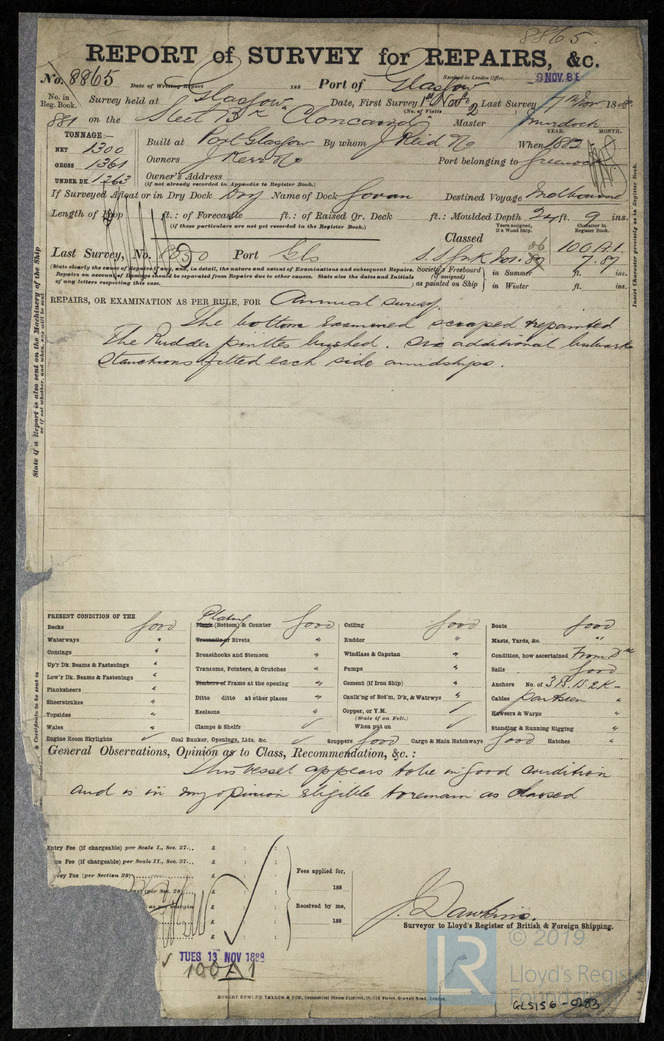 8865.
REPORT of SURVEY for REPAIRS, &c.
No. 8865 Date of Writing Report 188 Port of Glasgow Received in London Office, 9 NOV. 88
No. in Reg. Book. Survey held at Glasgow Date, First Survey 1st Nov Last Survey 7th Nov 188
(No. of Visits 2
881 on the Cloncaird Master Murdock
TONNAGE:— YEAR. MONTH.
NET 1300 Built at Port Glasgow By whom J Reid & Co When 1882
GROSS 1361 Owners J Kerr & Co Port belonging to Greenock
UNDER DK. 1263 Owner's Address
(if not already recorded in Appendix to Register Book.)
If Surveyed Afloat or in Dry Dock Dry Name of Dock Govan Destined Voyage Melbourne
Length of Poop ft.: of Forecastle ft.: of Raised Qr. Deck ft.: Moulded Depth 24 ft. 9 ins.
(if these particulars are not yet recorded in the Register Book.)
Years assigned, if a Wood Ship. Character in Register Book.
Classed 100A1.
Last Survey, No. 8050 Port Gls 7.87
(State clearly the cause of Repairs if any, and, in detail, the nature and extent of Examinations and subsequent Repairs. Repairs on account of Damage should be separated from Repairs due to other causes. State also the dates and Initials of any letters respecting this case.
Society's Freeboard (if assigned) as painted on Ship in Summer ft. ins.
in Winter ft. ins.
REPAIRS, OR EXAMINATION AS PER RULE, FOR Annual survey.
The bottom examined scraped & repainted
The Rudder pintles bushed. Six additional bulwark
stanchions fitted each side amidships.
State if a Report is also sent on the Machinery of the Ship
Insert Character precisely as in Register Book.
PRESENT CONDITION OF THE
Decks Good
Waterways "
Comings "
Up'r Dk. Beams & Fastenings "
Low'r Dk. Beams & Fastenings "
Planksheers "
Sheerstrakes "
Topsides "
Wales "
Engine Room Skylights
Plating
Plank (Bottom) & Counter Good
Treenails or Rivets "
Breasthooks and Stemson "
Transoms, Pointers, & Crutches "
Timbers or Frame at the opening "
Ditto ditto at other places "
Keelsons "
Clamps & Shelfs
Coal Bunker, Openings, Lids, &c.
Ceiling Good
Rudder "
Windlass & Capstan "
Pumps "
Cement (if Iron Ship) "
Caulk'ng of Bot'm, D'k, & Watrwys "
Copper, or Y.M.
(State if on Felt.)
When put on
Scuppers Good Cargo & Main Hatchways Good Hatches "
Boats Good
Masts, Yards, &c. "
Condition, how ascertained From Dk
Sails Good
Anchors No. of 3B. 1S. 2K
Cables
Hawsers & Warps "
Standing & Running Rigging "
General Observations, Opinion as to Class, Recommendation, &c.:
This vessel appears to be in good condition
and is in my opinion eligible to remain as classed
Entry Fee (if chargeable) per Scale I., Sec. 27... £ : :
Fee (if chargeable) per Scale II., Sec. 27... £ : :
Fee (per Section 28) £ : :
Fees applied for,
188
Received by me,
188
J. Dawkins.
Surveyor to Lloyd's Register of British & Foreign Shipping.
TUES 13 NOV 1888
100A1
ROBERT EDWARD TAYLOR & SON
© 2019
LR Lloyd's Register
GLS156-0283